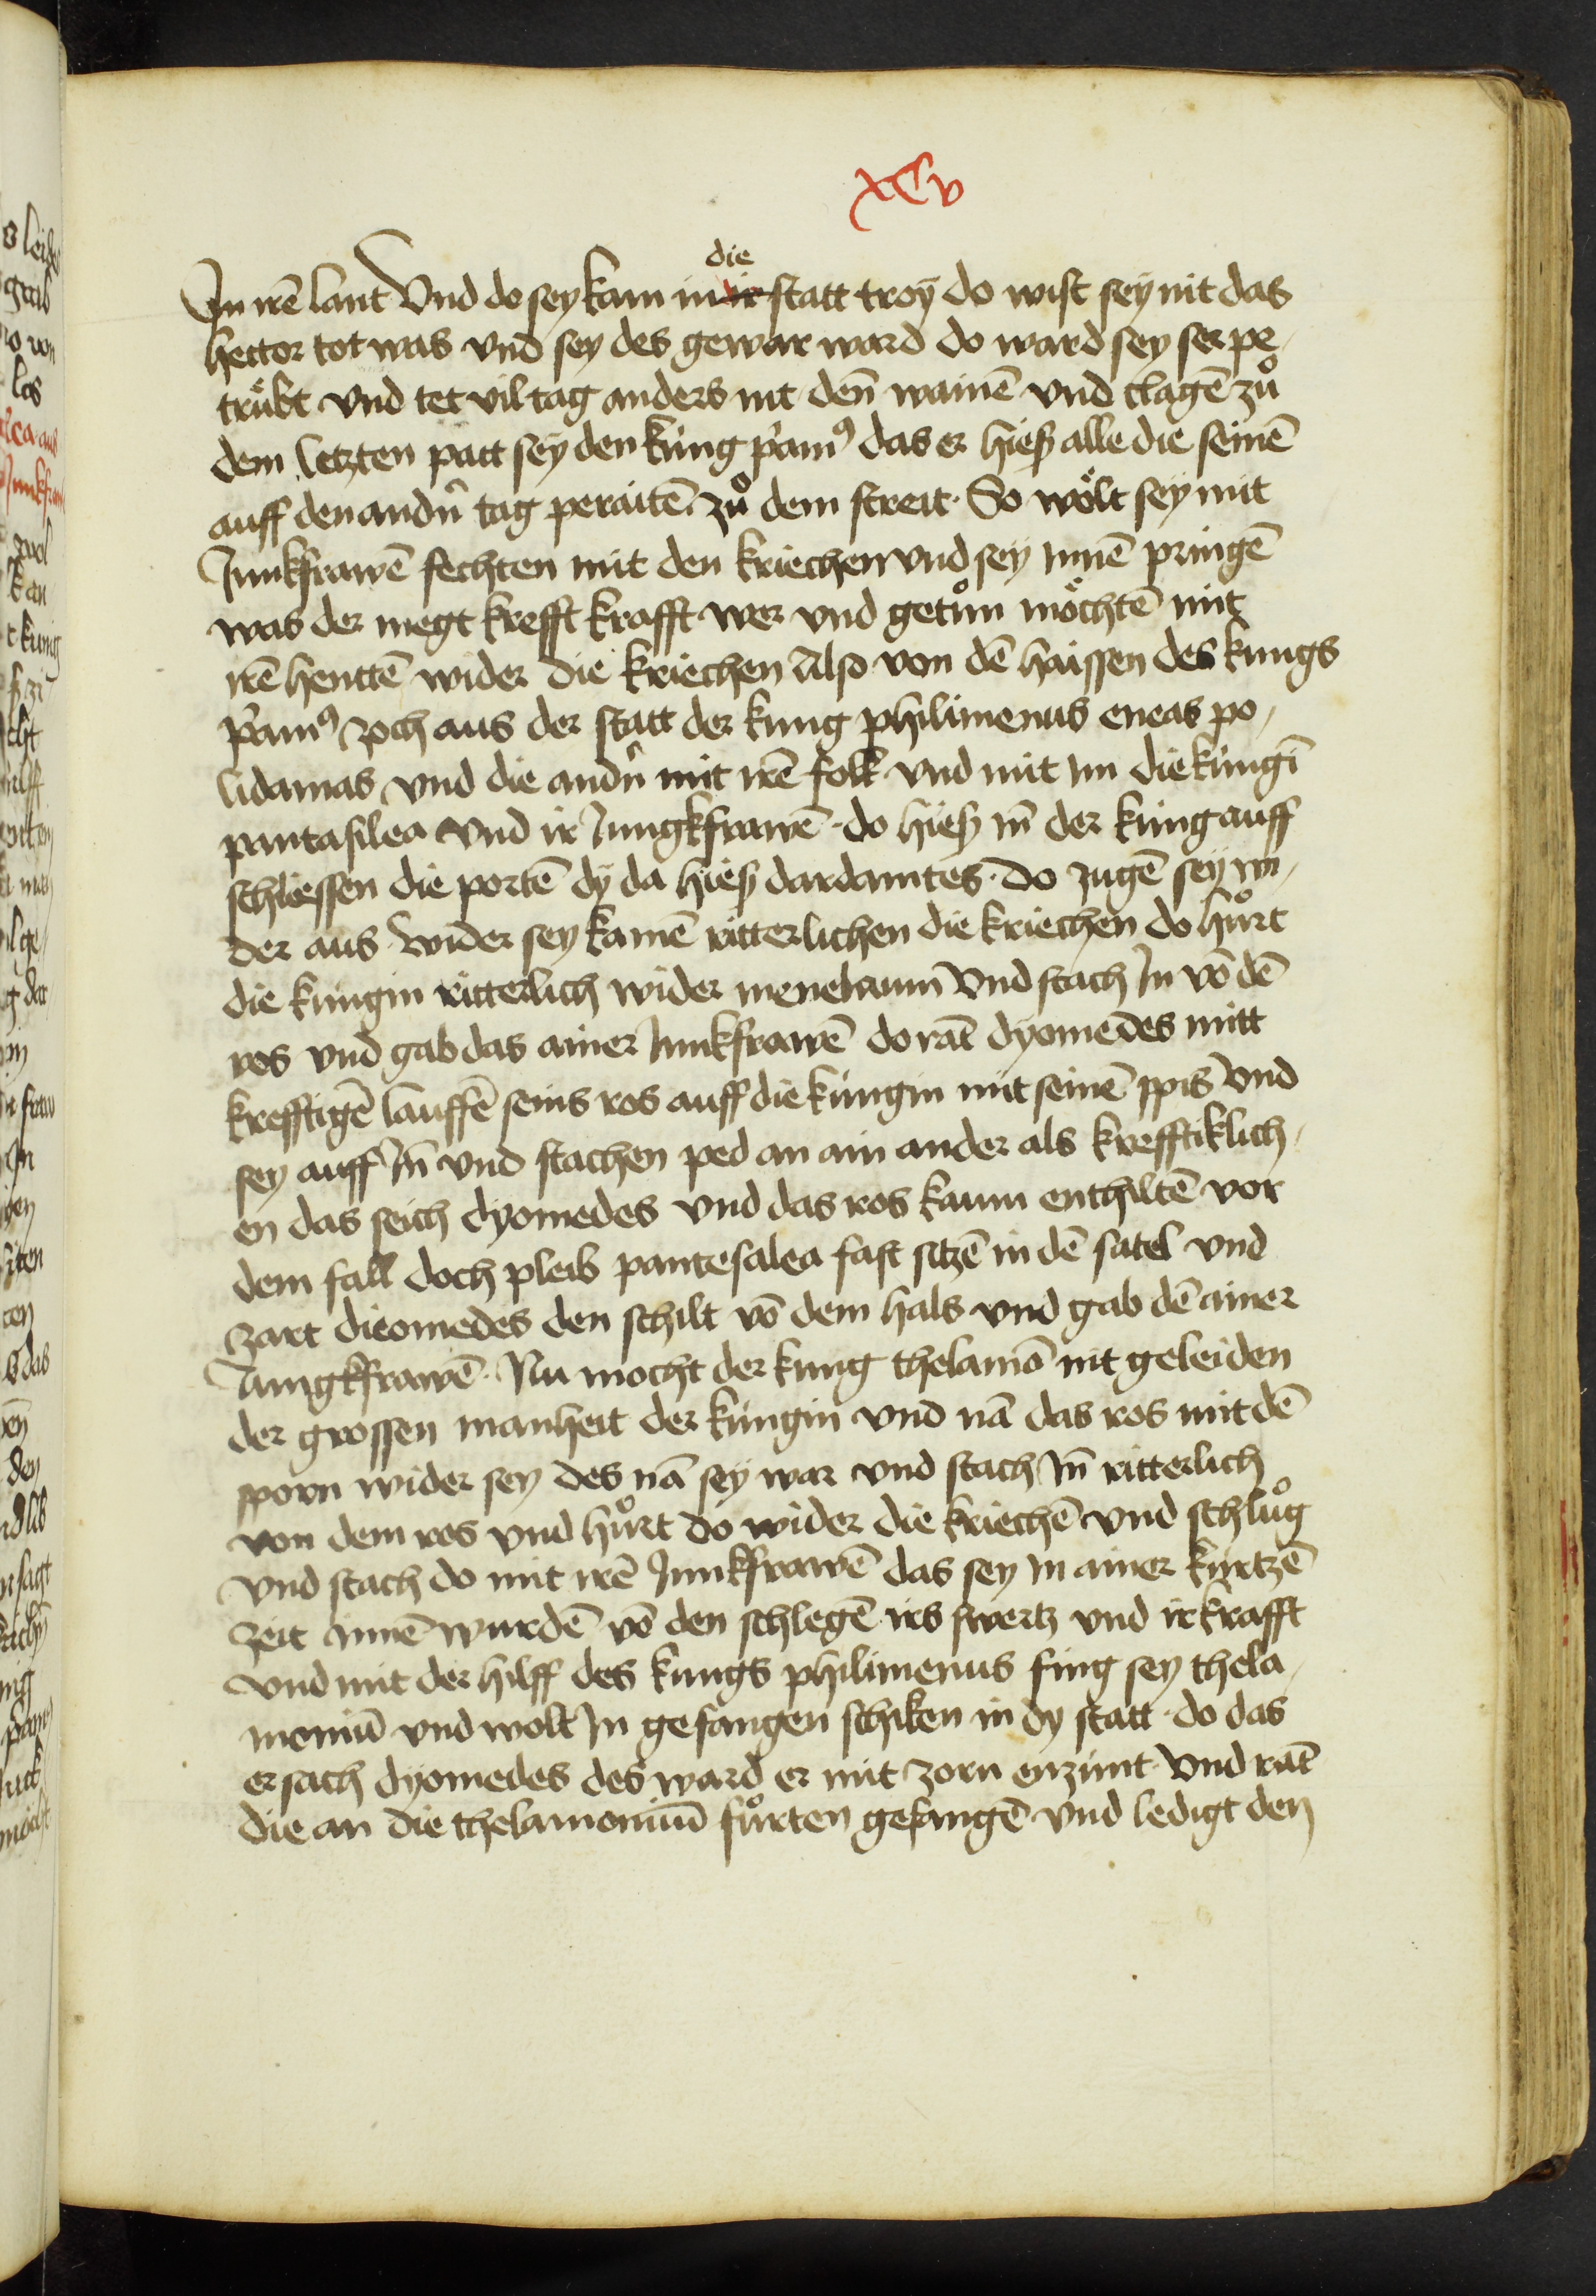 xCv
die
In irē lant Vnd do sey kam in ir statt troÿ do wist seÿ nit das
hector tot was vnd sey des gewar ward do ward sey ser pe,
trůbt vnd tet vil tag anders nit den̄ wainē vnd clagē zů
dem letzten patt seÿ den kúng p̓amꝰ das er hieß alle die seinē
auff den andn̄ tag peraitē zů dem streit. So wölt seÿ mit
Junkfrawē fechten mit den kriechen vnd seÿ innē pringē
was der megt krefft krafft wer vnd getůn möchtē mit
irē henttē wider die kriechen Also von dē haissen des kungs
p̓amꝰ zoch aus der statt der kung philimenus eneas po,
lidamas vnd die andn̄ mit irē folk vnd mit im die kúngī
pantasilea vnd ir Jungkfrawē. do hieß in̄ der kúng auff
schliessen die portē dÿ da hieß dardamites. do zugē seÿ wi,
der aus wider sey kamē ritterlichen die kriechen do hůrt
die kúngin ritterlich wider menelaum Vnd stach In vō dē
ros vnd gab das ainer Junkfrawē do rāt dyomedes mitt
krefftigē lauffē seins ros auff die kúngin mit seinē spis Vnd
sey auff In̄ vnd stachen ped an ain ander als krefftiklich,
en das seich dyomedes vnd das ros kaum enthiltē vor
dem fall doch pleib pantesalea fast sitzē in dē satel vnd
zart dieomedes den schilt vō dem hals vnd gab dē ainer
Jungkfrawē. Nu mocht der kung thelamō nit geleiden
der grossen manheit der kúngin vnd nā das ros mit dē
sporn wider sey des nā seÿ war vnd stach In̄ ritterlich
von dem ros vnd hůrt do wider die kriechē vnd schlůg
vnd stach do mit irē Junkfrawē das sey in ainer kúrtzē
zeit innē wurdē vō den schlegē irs swertz vnd ir krafft
vnd mit der hilff des kungs philimenus fing sey thela,
moniū vnd wolt In gefangen schiken in dy statt. do das
ersach dyomedes des ward er mit zorn enzúnt. Vnd rāt
die an die thelamoniū fůrten gefangē vnd ledigt den